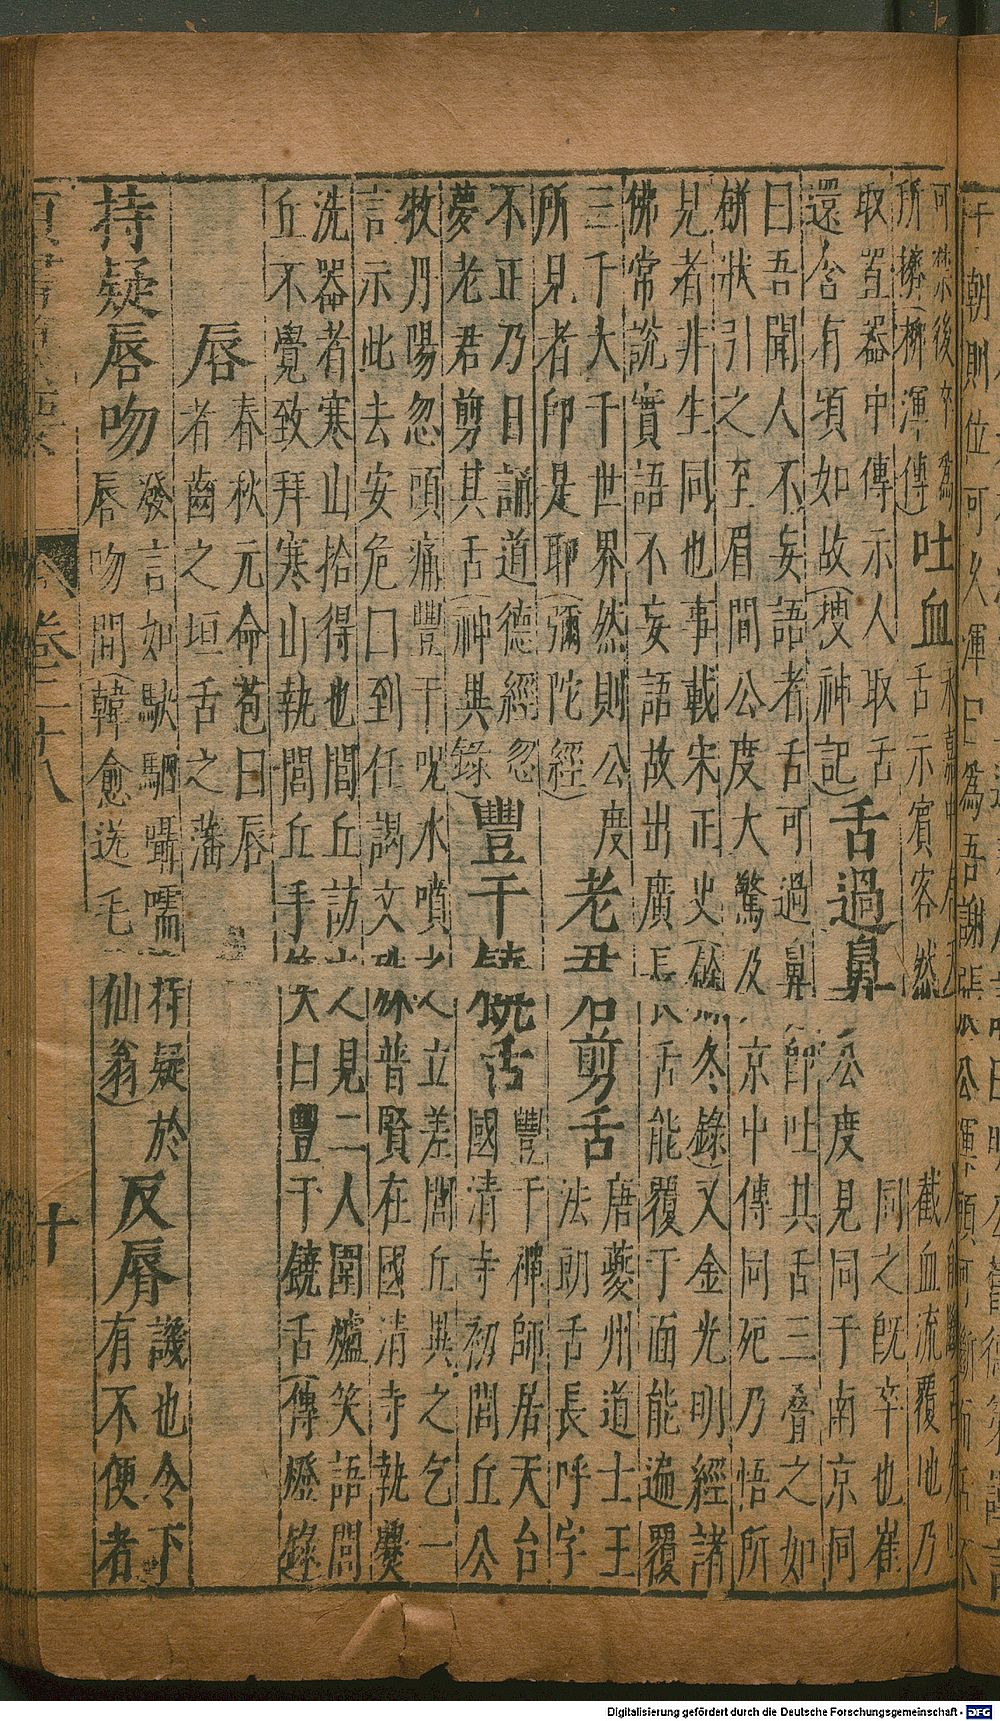 可禁後卒為
所擠(柳渾傳)
吐血
舌示賓客然
截血流覆地乃
取置器中傳示人取舌
還含有頃如故(搜神記)
舌過鼻
同之旣卒也崔
公度見同于南京同
曰吾聞人不妄語者舌可過鼻即吐其舌三疊之如
餅狀引之至眉間公度大驚及京中傳同死乃悟所
見者非生同也事載宋正史(餘冬錄)又金光明經諸
佛常說實語不妄語故出廣長舌能覆于面能遍覆
三千大千世界然則公度
所見者卽是耶(彌陀經)
老君剪舌
唐夔州道士王
法朗舌長呼字
不正乃日誦道德經忽
夢老君剪其舌(神異錄)
豐干饒舌
豐干禪師居天台
國清寺初閭丘公
牧丹陽忽頭痛豐干呪水噴之立差閭丘異之乞一
言示此去安危曰到任謁文殊普賢在國清寺執爨
洗器者寒山拾得也閭丘訪人見二人圍爐笑語閭
丘不覺致拜寒山執閭丘手笑曰豐干饒舌(傳燈錄
唇
春秋元命苞曰唇
者齒之垣舌之藩
持疑唇吻
發言如駃駟囁嚅持疑於
唇吻間(韓愈送毛仙翁)
反脣
譏也令下
有不便者
十
Digitalisierung gefördert durch die Deutsche Forschungsgemeinschaft - DFG